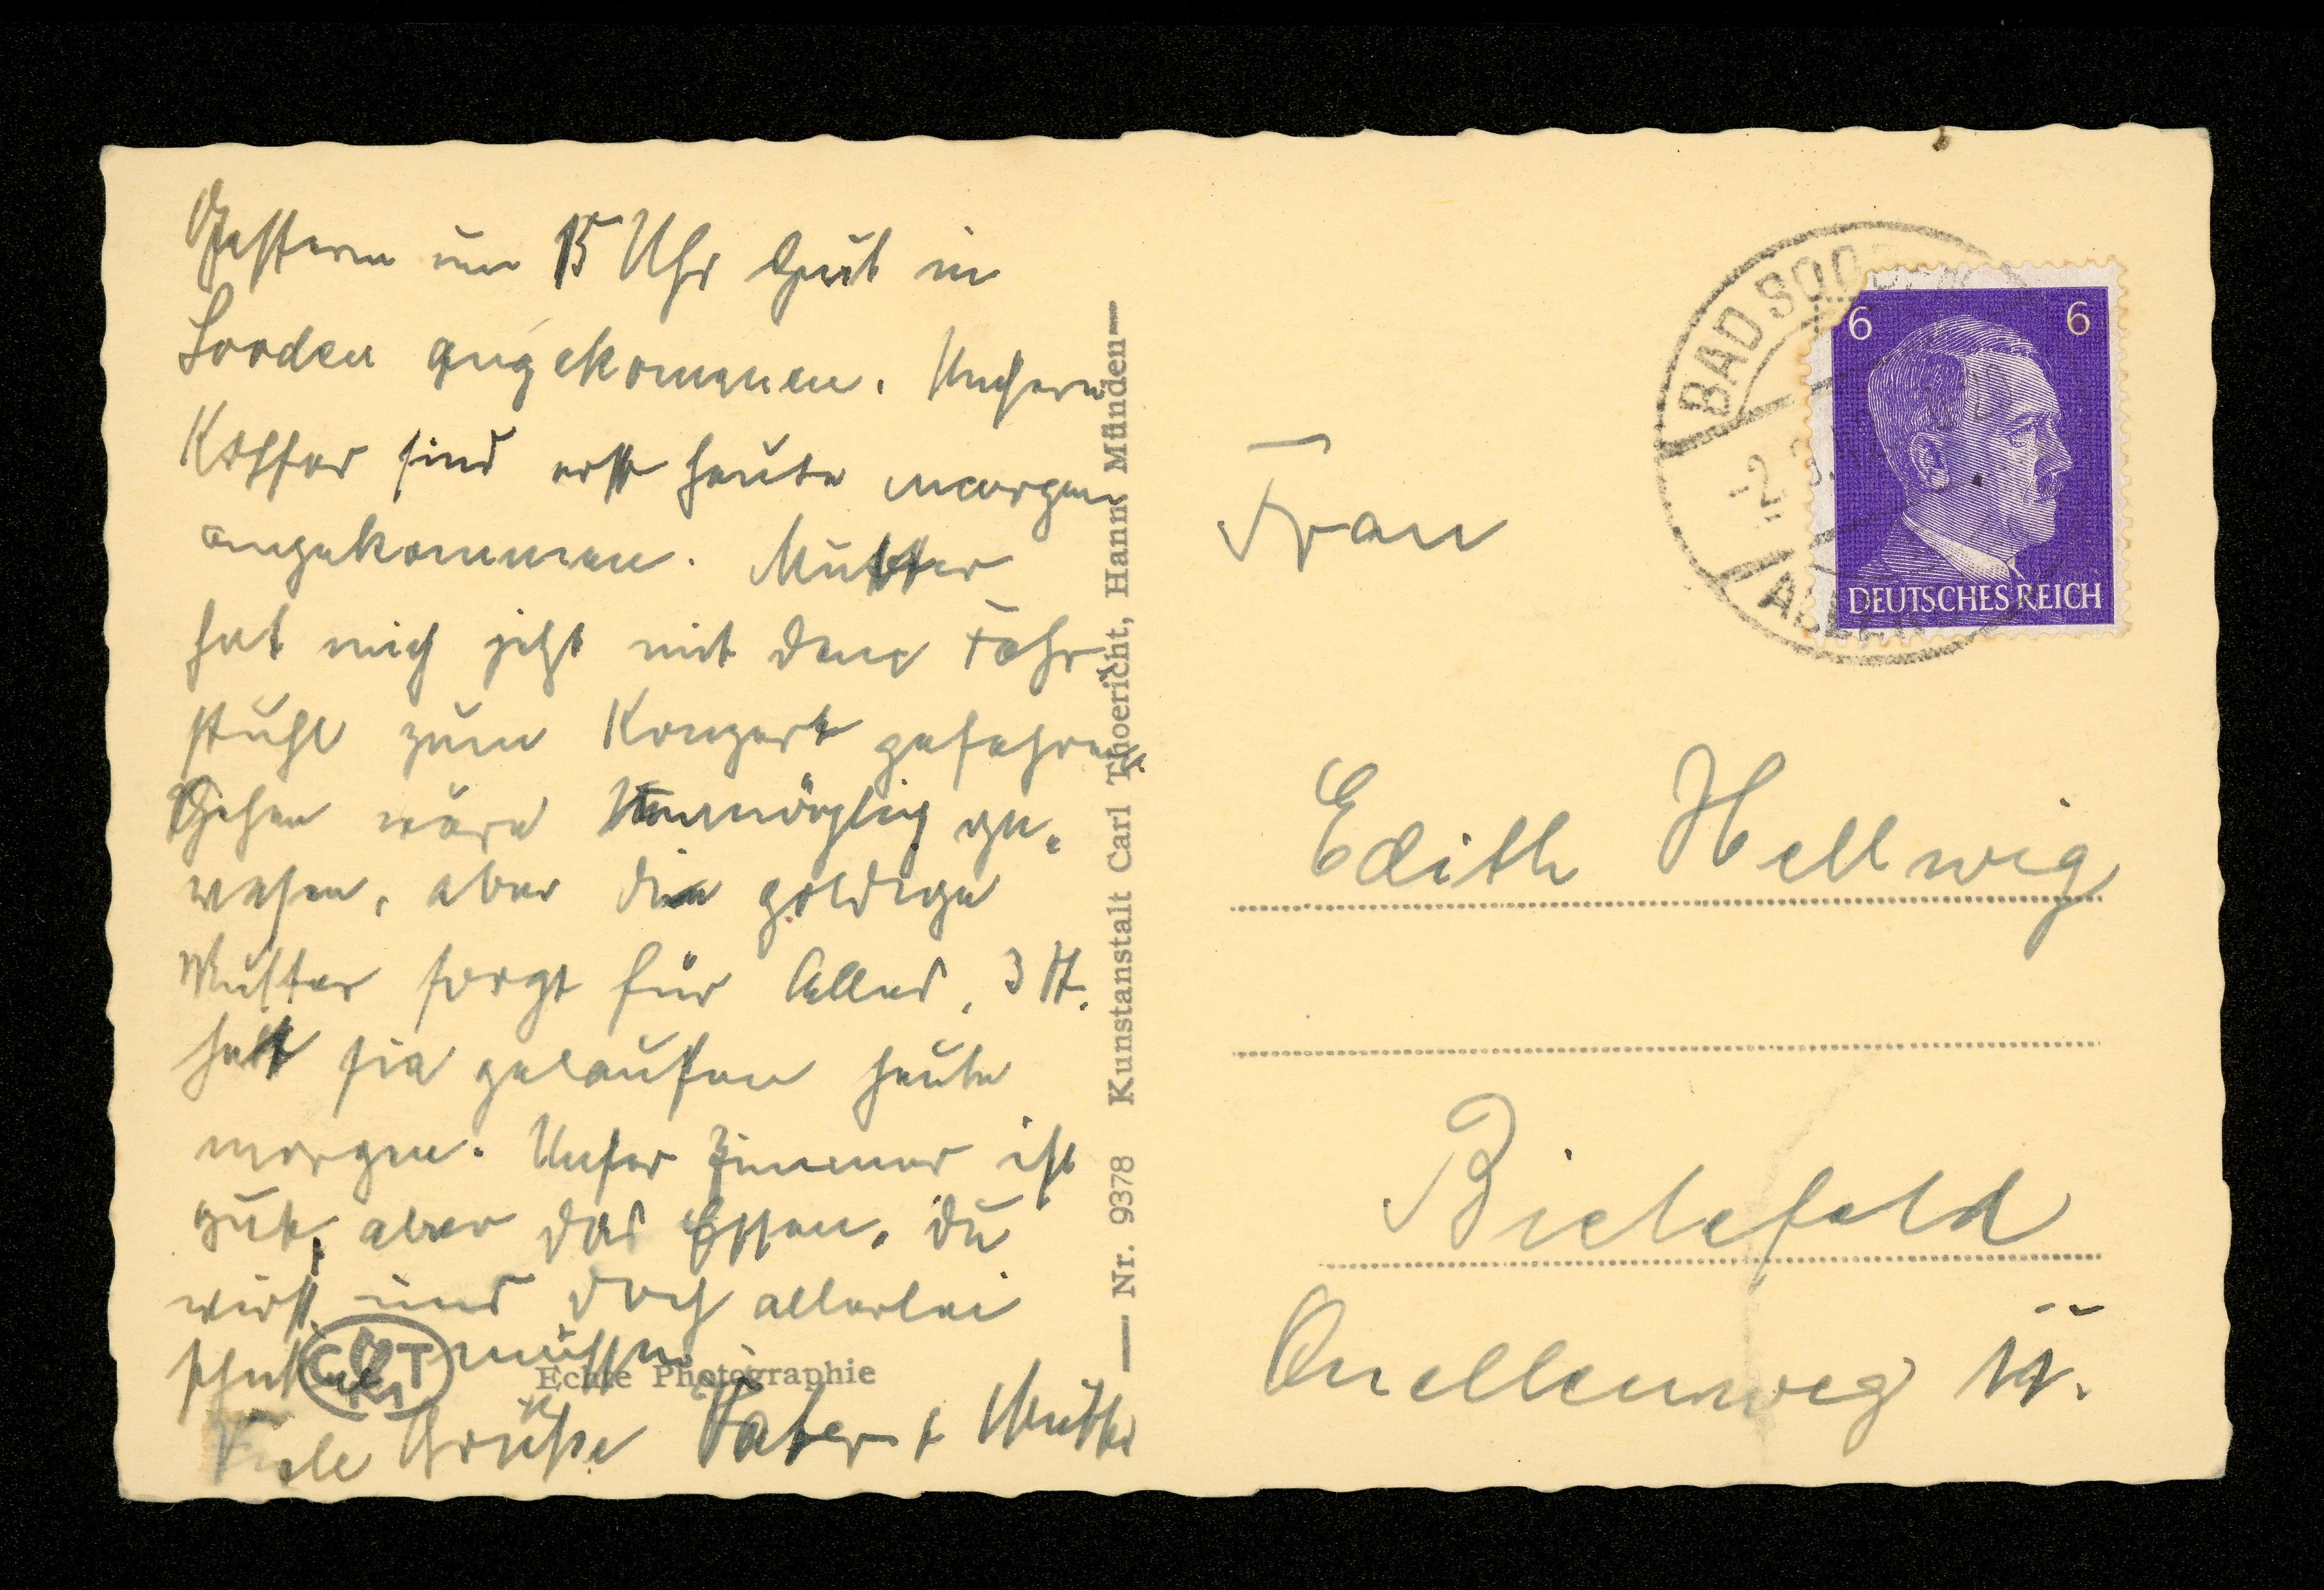 Gestern um 15 Uhr gut in
Sooden angekommen. Unsere
Koffer sind erst heute morgen
angekommen. Mutter
hat mich jetzt mit dem Fahr
stuhl zum Konzert gefahren.
Gehen wäre unmöglich ge-
wesen, aber die goldige
Mutter sorgt für Alles, 3 St.
hat sie gelaufen heute
morgen. Unser Zimmer ist
gut, aber das Essen, du
wirst und doch allerlei
müssen
Viele Grüße Vater + Mutter
Nr. 9378 Kunstanstalt Carl Thoericht, Hann Münden
Echte Photographie
C T
BAD SOOD
-2.
6 6
DEUTSCHES REICH
Frau
Edith Hellwig
Bielefeld
Quellenweg